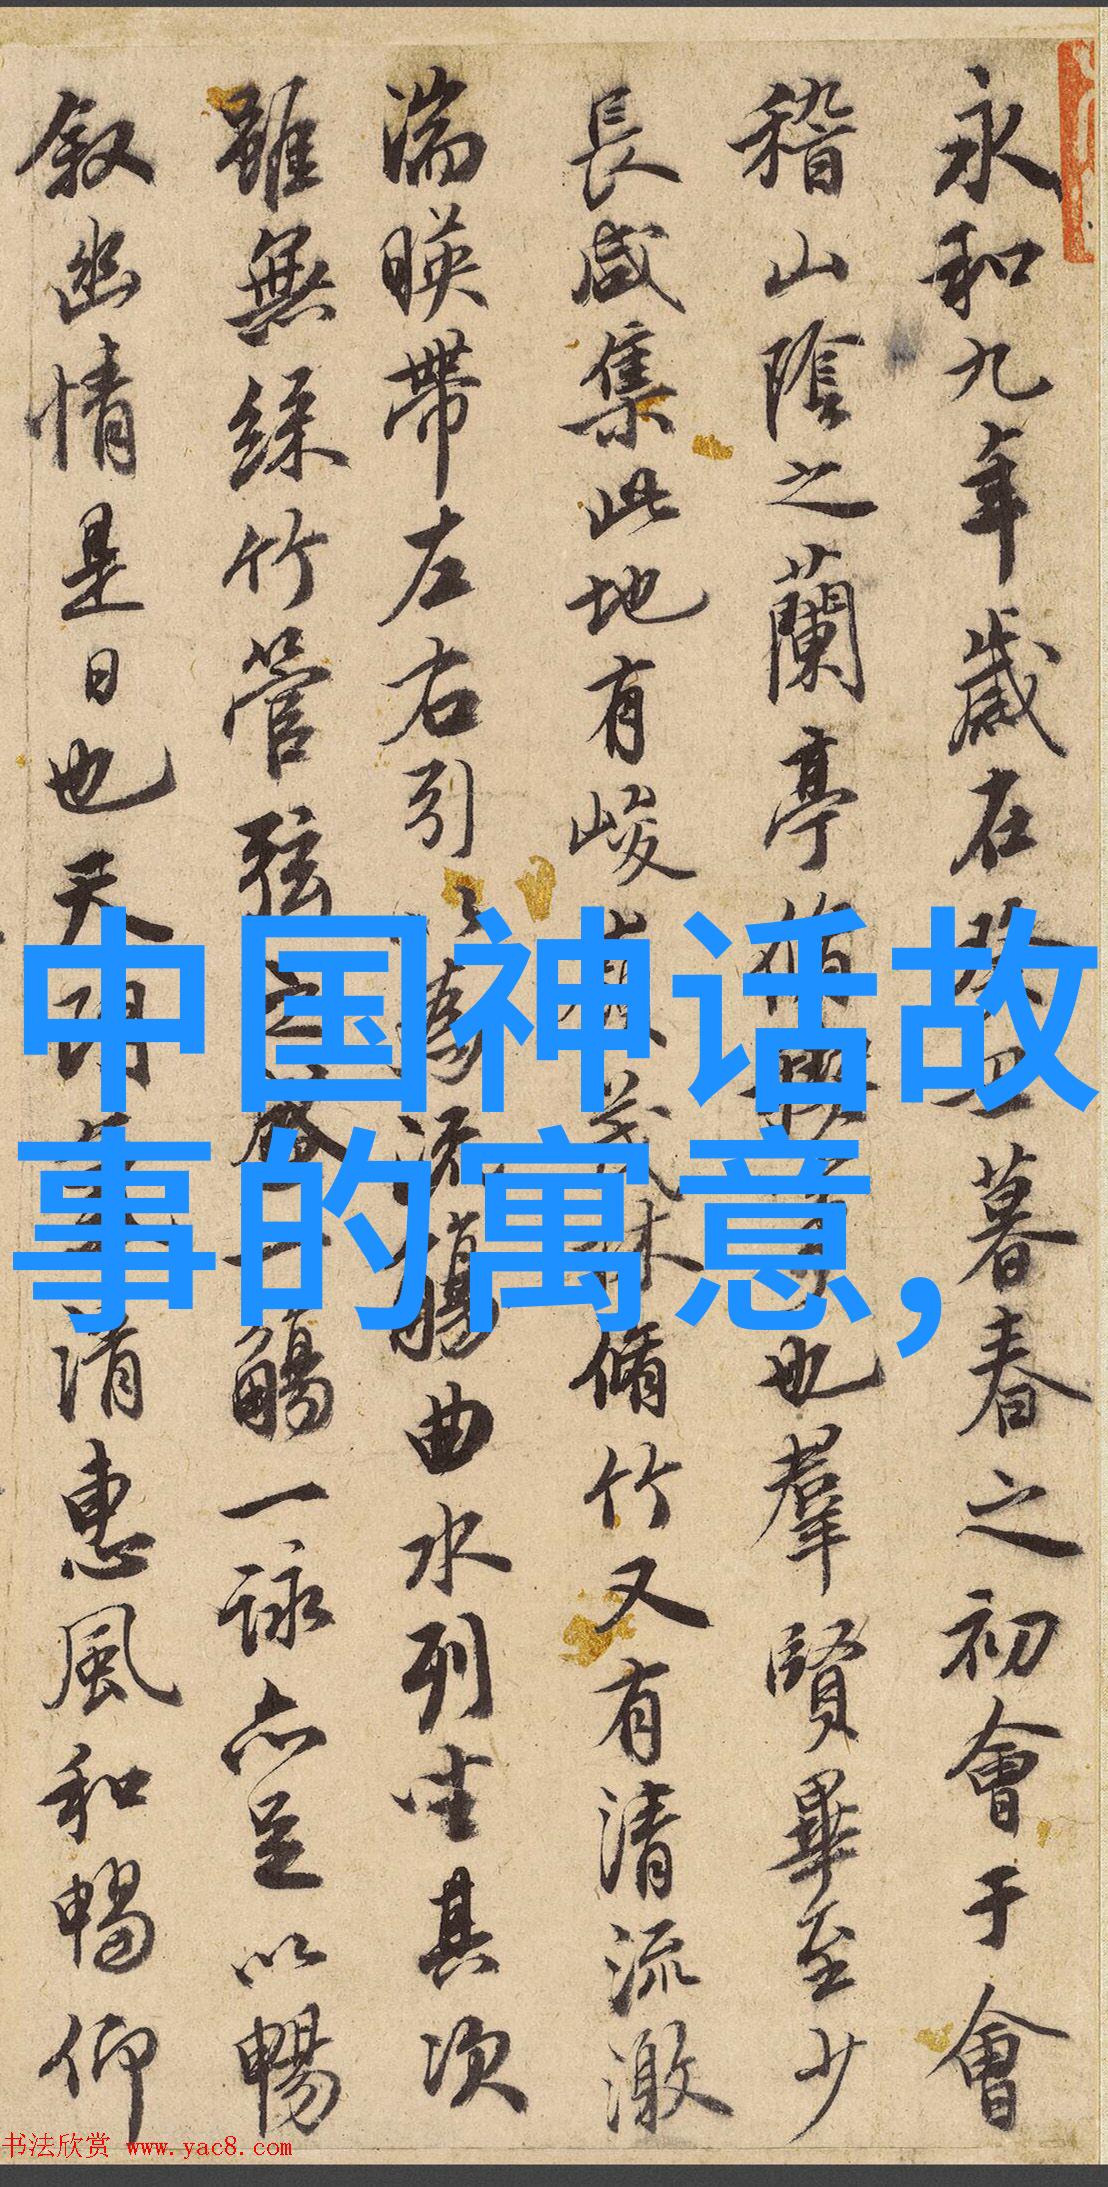 永和九年歲在癸丑暮春之初會于會
稽山陰之蘭亭脩稧事也羣賢畢至少
長咸集此地有峻嶺茂林脩竹又有清流激
湍暎帶左右引以為流觴曲水列坐其次
雖無絲竹管弦之盛一觴一詠亦足以暢
叙幽情是日也天朗氣清惠風和暢仰
中国神话故
事的寓意,
书法欣赏 www.yac8.com